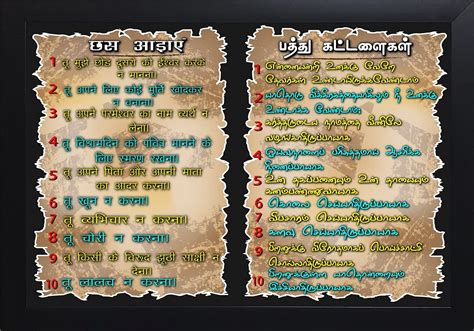 छस आझाएं
1 तू मुझे छोड़ दूसरों को ईश्वर करके
न मानना।
2 तू अपने लिए कोई मूर्ति खोदकर
न बनाना।
3 तू अपने परमेश्वर का नाम व्यर्थ न
लेना।
4 तू विश्रामदिन को पवित्र मानने के
लिए स्मरण रखना।
5 तू अपने पिता और अपनी माता
का आदर करना।
6 तू खून न करना।
7 तू व्यभिचार न करना।
8 तू चोरी न करना।
9 तू किसी के विरुद्ध झूठी साक्षी न
देना।
10 तू लालच न करना।
பத்து கட்டளைகள்
1 என்னையன்றி உனக்கு வேறே
தேவர்கள் உண்டாயிருக்கவேண்டாம்
2 யாதொரு விக்கிரகத்தையாகிலும் நீ உனக்கு
உண்டாக்க வேண்டாம்
3 கர்த்தருடைய நாமத்தை வீணிலே
வழங்காதிருப்பாயாக
4 ஓய்வுநாளைப் பரிசுத்தமாய் ஆசரிக்க
நினைப்பாயாக
5 உன் தகப்பனையும் உன் தாயையும்
கனம்பண்ணுவாயாக
6 கொலை செய்யாதிருப்பாயாக
7 விபசாரம் செய்யாதிருப்பாயாக
8 களவு செய்யாதிருப்பாயாக
9 பிறனுக்கு விரோதமாகப் பொய்சாட்சி
சொல்லாதிருப்பாயாக
10 பிறனுக்குள்ள யாதொன்றையும்
இச்சியாதிருப்பாயாக